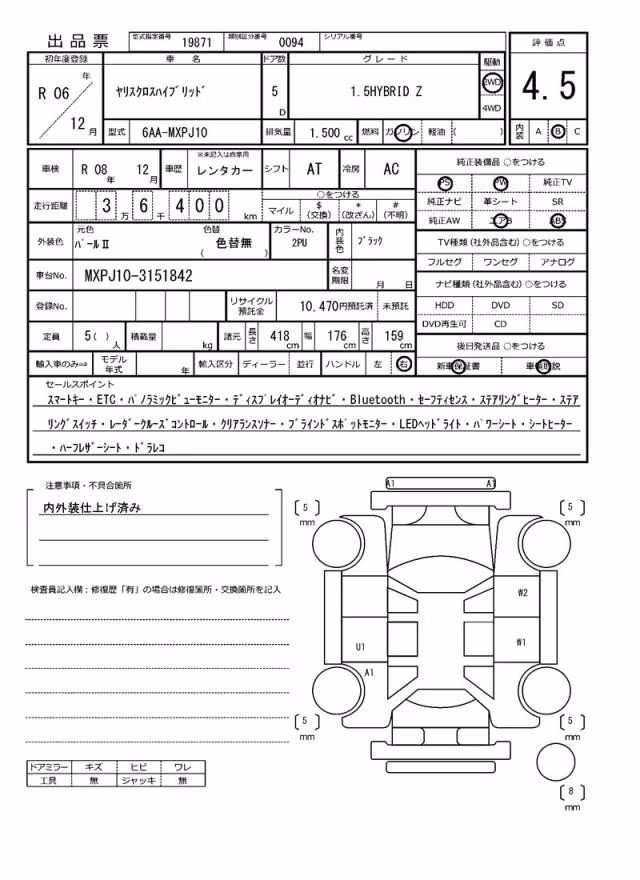 出品票 型式指定番号 19871 類別区分番号 0094 シリアル番号
評価点
4.5
内装 A B C
初年度登録 車名 ドア数 グレード 駆動
R 06 年 12 月 ﾔﾘｽｸﾛｽﾊｲﾌﾞﾘｯﾄﾞ 5 D 1.5HYBRID Z 2WD 4WD
型式 6AA-MXPJ10 排気量 1.500 cc 燃料 ガソリン 軽油 ( )
車検 R 08 年 12 月 車歴 ※未記入は自家用 レンタカー シフト AT 冷房 AC
走行距離 3 万 6 千 4 0 0 km ○をつける マイル $ (交換) * (改ざん) # (不明)
外装色 元色 ﾊﾟｰﾙⅡ 色替 ( 色替無 ) カラーNo. 2PU 内装色 ﾌﾞﾗｯｸ
車台No. MXPJ10-3151842 名変期限 月 日
登録No. リサイクル預託金 10.470円預託済 未預託
定員 5 ( ) 人 積載量 kg 諸元 長さ 418 cm 幅 176 cm 高さ 159 cm
輸入車のみ⇒ モデル年式 年 輸入区分 ディーラー ・ 並行 ハンドル 左 右
純正装備品 ○をつける
PS PW 純正TV
純正ナビ 革シート SR
純正AW エアB ABS
TV種類 (社外品含む) ○をつける
フルセグ ワンセグ アナログ
ナビ種類 (社外品含む) ○をつける
HDD DVD SD
DVD再生可 CD
後日発送品 ○をつける
新車保証書 車輌取説
セールスポイント
ｽﾏｰﾄｷｰ・ETC・ﾊﾟﾉﾗﾐｯｸﾋﾞｭｰﾓﾆﾀｰ・ﾃﾞｨｽﾌﾟﾚｲｵｰﾃﾞｨｵﾅﾋﾞ・Bluetooth・ｾｰﾌﾃｨｾﾝｽ・ｽﾃｱﾘﾝｸﾞﾋｰﾀｰ・ｽﾃｱ
ﾘﾝｸﾞｽｲｯﾁ・ﾚｰﾀﾞｰｸﾙｰｽﾞｺﾝﾄﾛｰﾙ・ｸﾘｱﾗﾝｽｿﾅｰ・ﾌﾞﾗｲﾝﾄﾞｽﾎﾟｯﾄﾓﾆﾀｰ・LEDﾍｯﾄﾞﾗｲﾄ・ﾊﾟﾜｰｼｰﾄ・ｼｰﾄﾋｰﾀｰ
・ﾊｰﾌﾚｻﾞｰｼｰﾄ・ﾄﾞﾗﾚｺ
注意事項・不具合箇所
内外装仕上げ済み
検査員記入欄：修復歴「有」の場合は修復箇所・交換箇所を記入
ドアミラー キズ ヒビ ワレ
工具 無 ジャッキ 無
A1 A1
5 mm 5 mm
W2
U1 W1
A1
5 mm 5 mm
8 mm